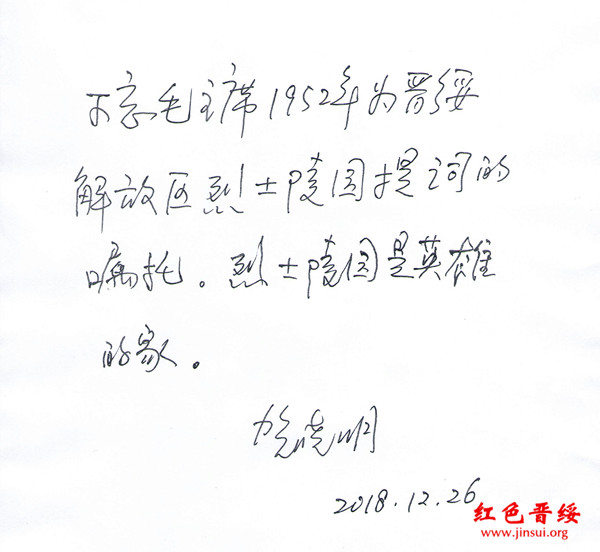 不忘毛主席1952年为晋绥
解放区烈士陵园提词的
嘱托。烈士陵园是英雄
的家。
贺晓明
2018.12.26
红色晋绥
www.jinsui.org